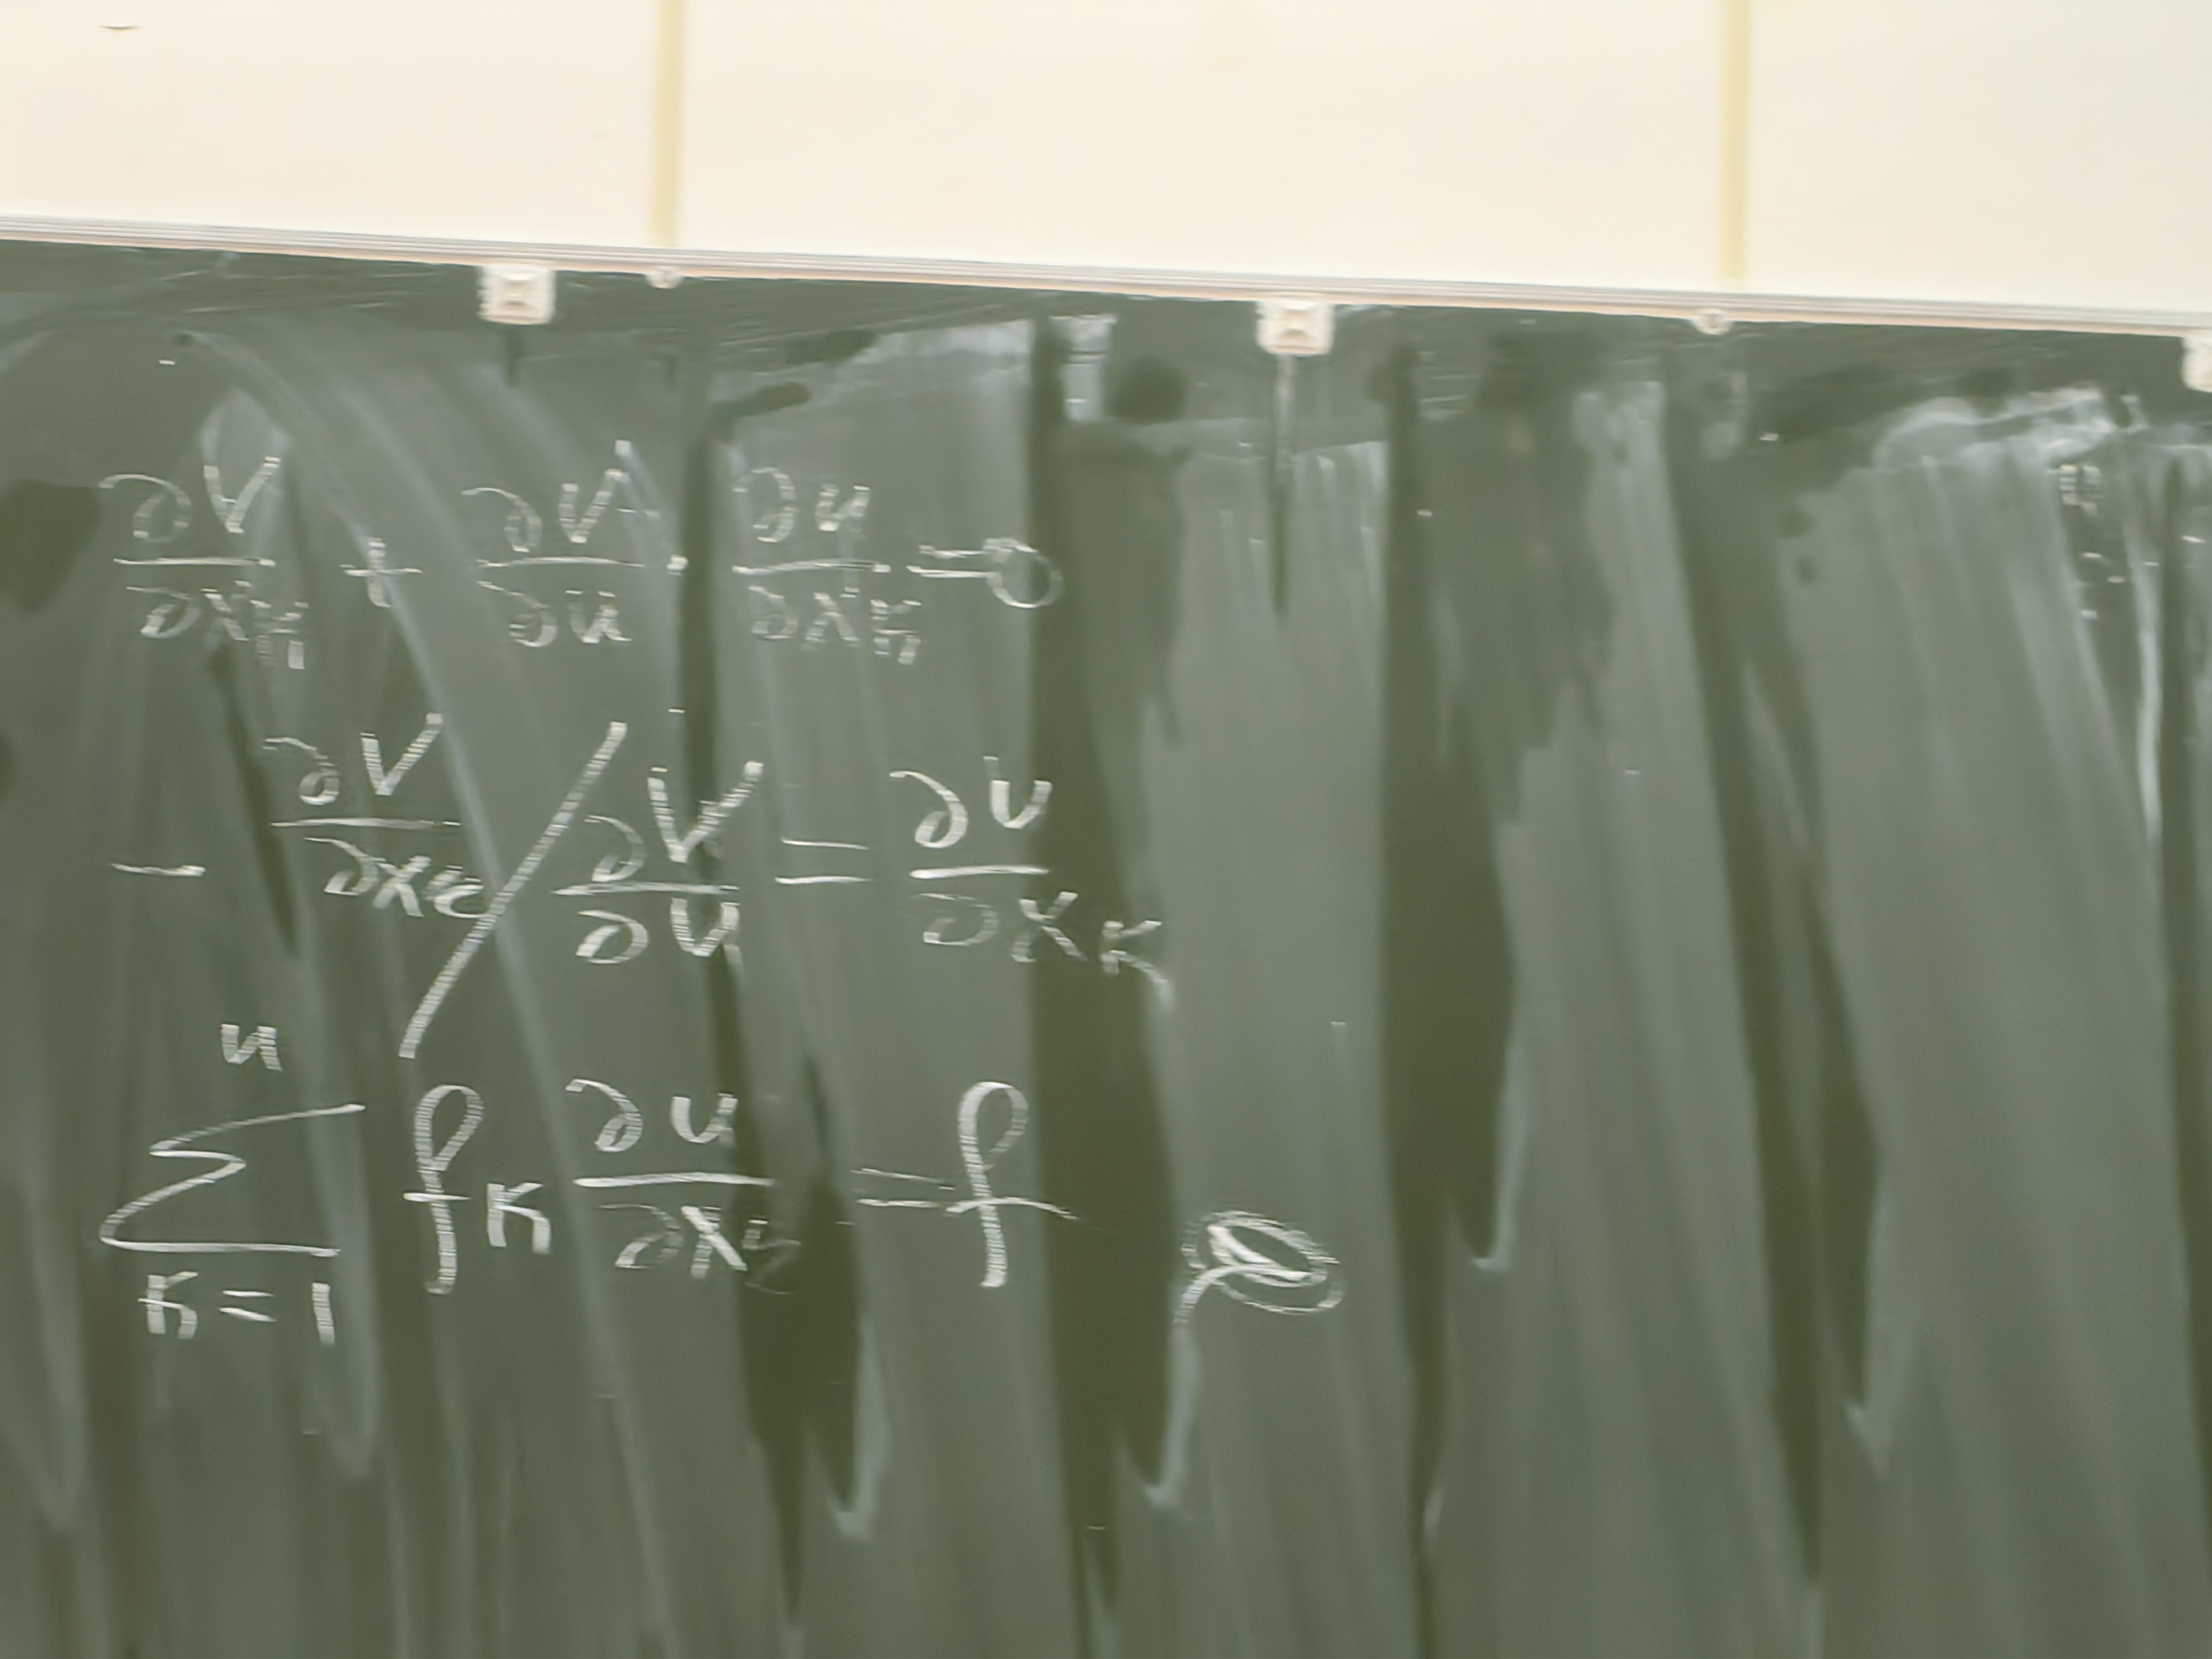 ∂V/∂x_k + ∂V/∂u · ∂u/∂x_k = 0
− ∂V/∂x_k / ∂V/∂u = ∂u/∂x_k
∑_{k=1}^{n} f_k ∂u/∂x_k = f